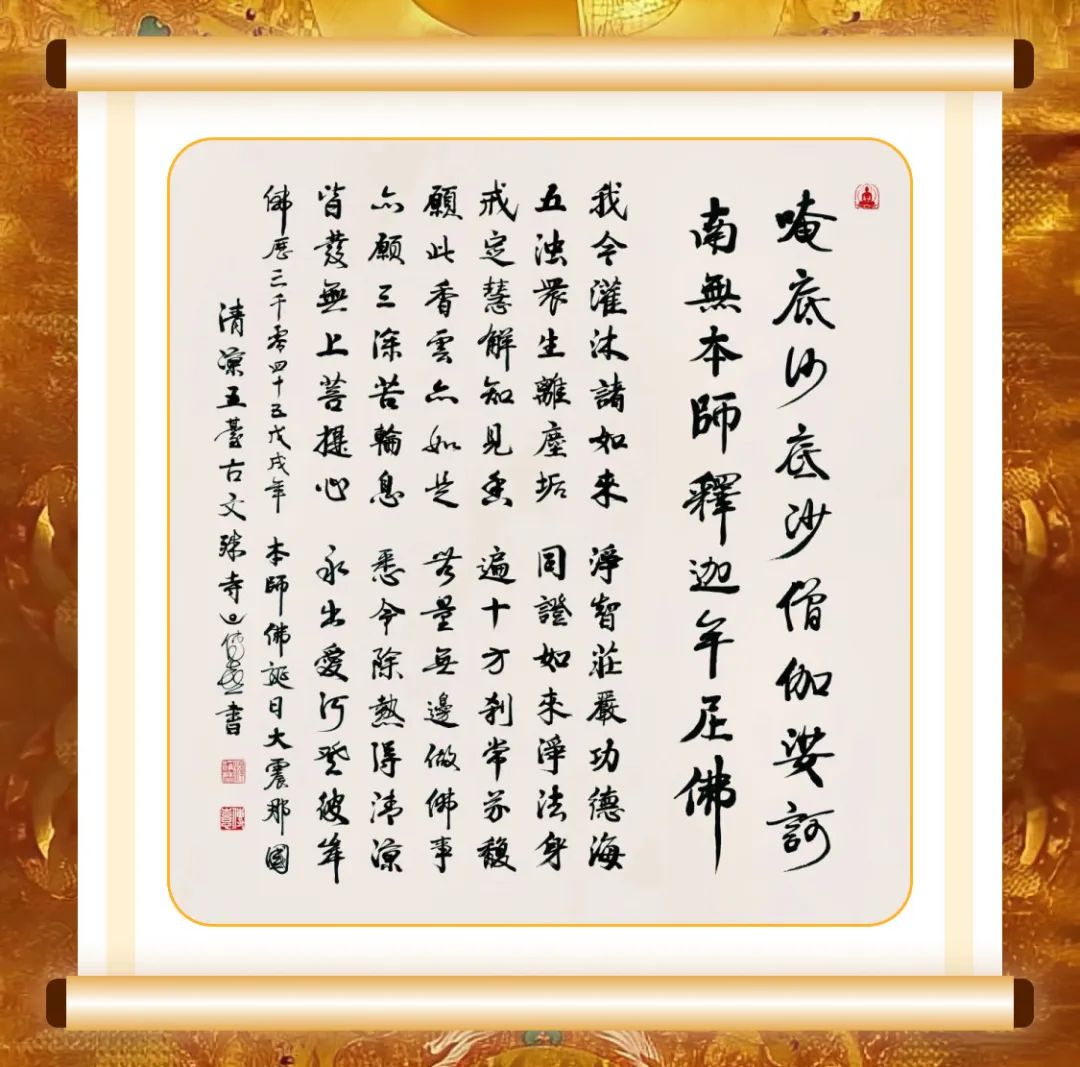 唵底沙底沙僧伽娑訶
南無本師釋迦牟尼佛
我今灌沐諸如來 淨智莊嚴功德海
五浊眾生離塵垢 同證如來淨法身
戒定慧解知見香 遍十方刹常芬馥
願此香雲亦如是 无量無邊做佛事
亦願三涂苦輪息 悉令除熱得清涼
皆發無上菩提心 永出愛河登彼岸
佛歷三千零四十五戊戌年 本師佛誕日大震那國
清凉五臺古文殊寺 書